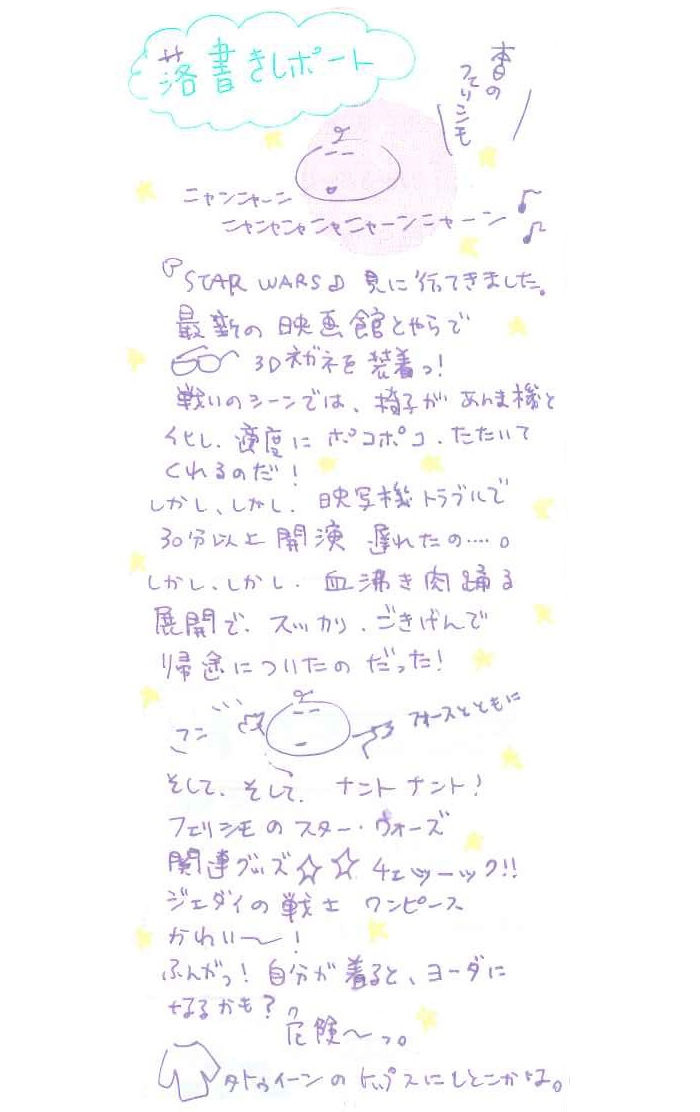 落書きレポート
本日の
フェリシモ
ニャンニャーン
ニャンニャニャニャーンニャーン♪
『STAR WARS』 見に行てきました。
最新の 映画館とやらで
3Dメガネを 装着っ!
戦いのシーンでは、椅子が あんま機と
化し、適度に ポコポコ、たたいて
くれるのだ!
しかし、しかし、映写機トラブルで
30分以上 開演 遅れたの・・・・。
しかし、しかし、血沸き肉踊る
展開で、スッカリ、ごきげんで
帰途についたの だった!
フン
フォースとともに
そして、そして、ナント ナント!
フェリシモの スター・ウォーズ
関連グッズ☆☆ チェッーック!!
ジェダイの戦士 ワンピース
かわいい〜!
ふんがっ!自分が 着ると、ヨーダに
なるかも?
危険〜っ。
タトゥイーンの トップスにしとこかな。